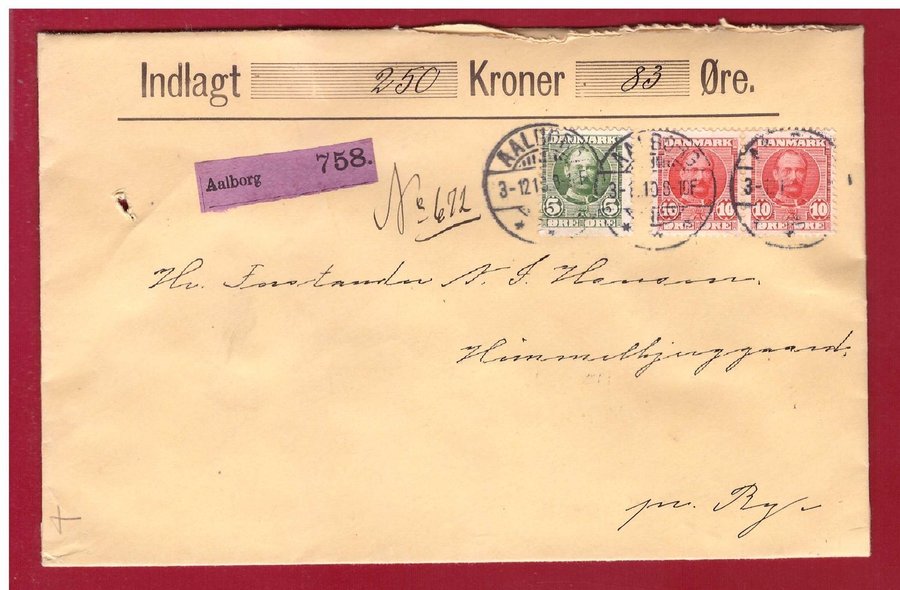 Indlagt 250 Kroner 83 Øre.
Aalborg 758.
No 672
AALBORG 3-12.1
DANMARK 5 5 ØRE ØRE
DANMARK 10 10 ØRE ØRE
DANMARK 10 10 ØRE ØRE
Hr. Forstander N. J. Hansen.
Himmelbjerggaard.
pr. Ry.